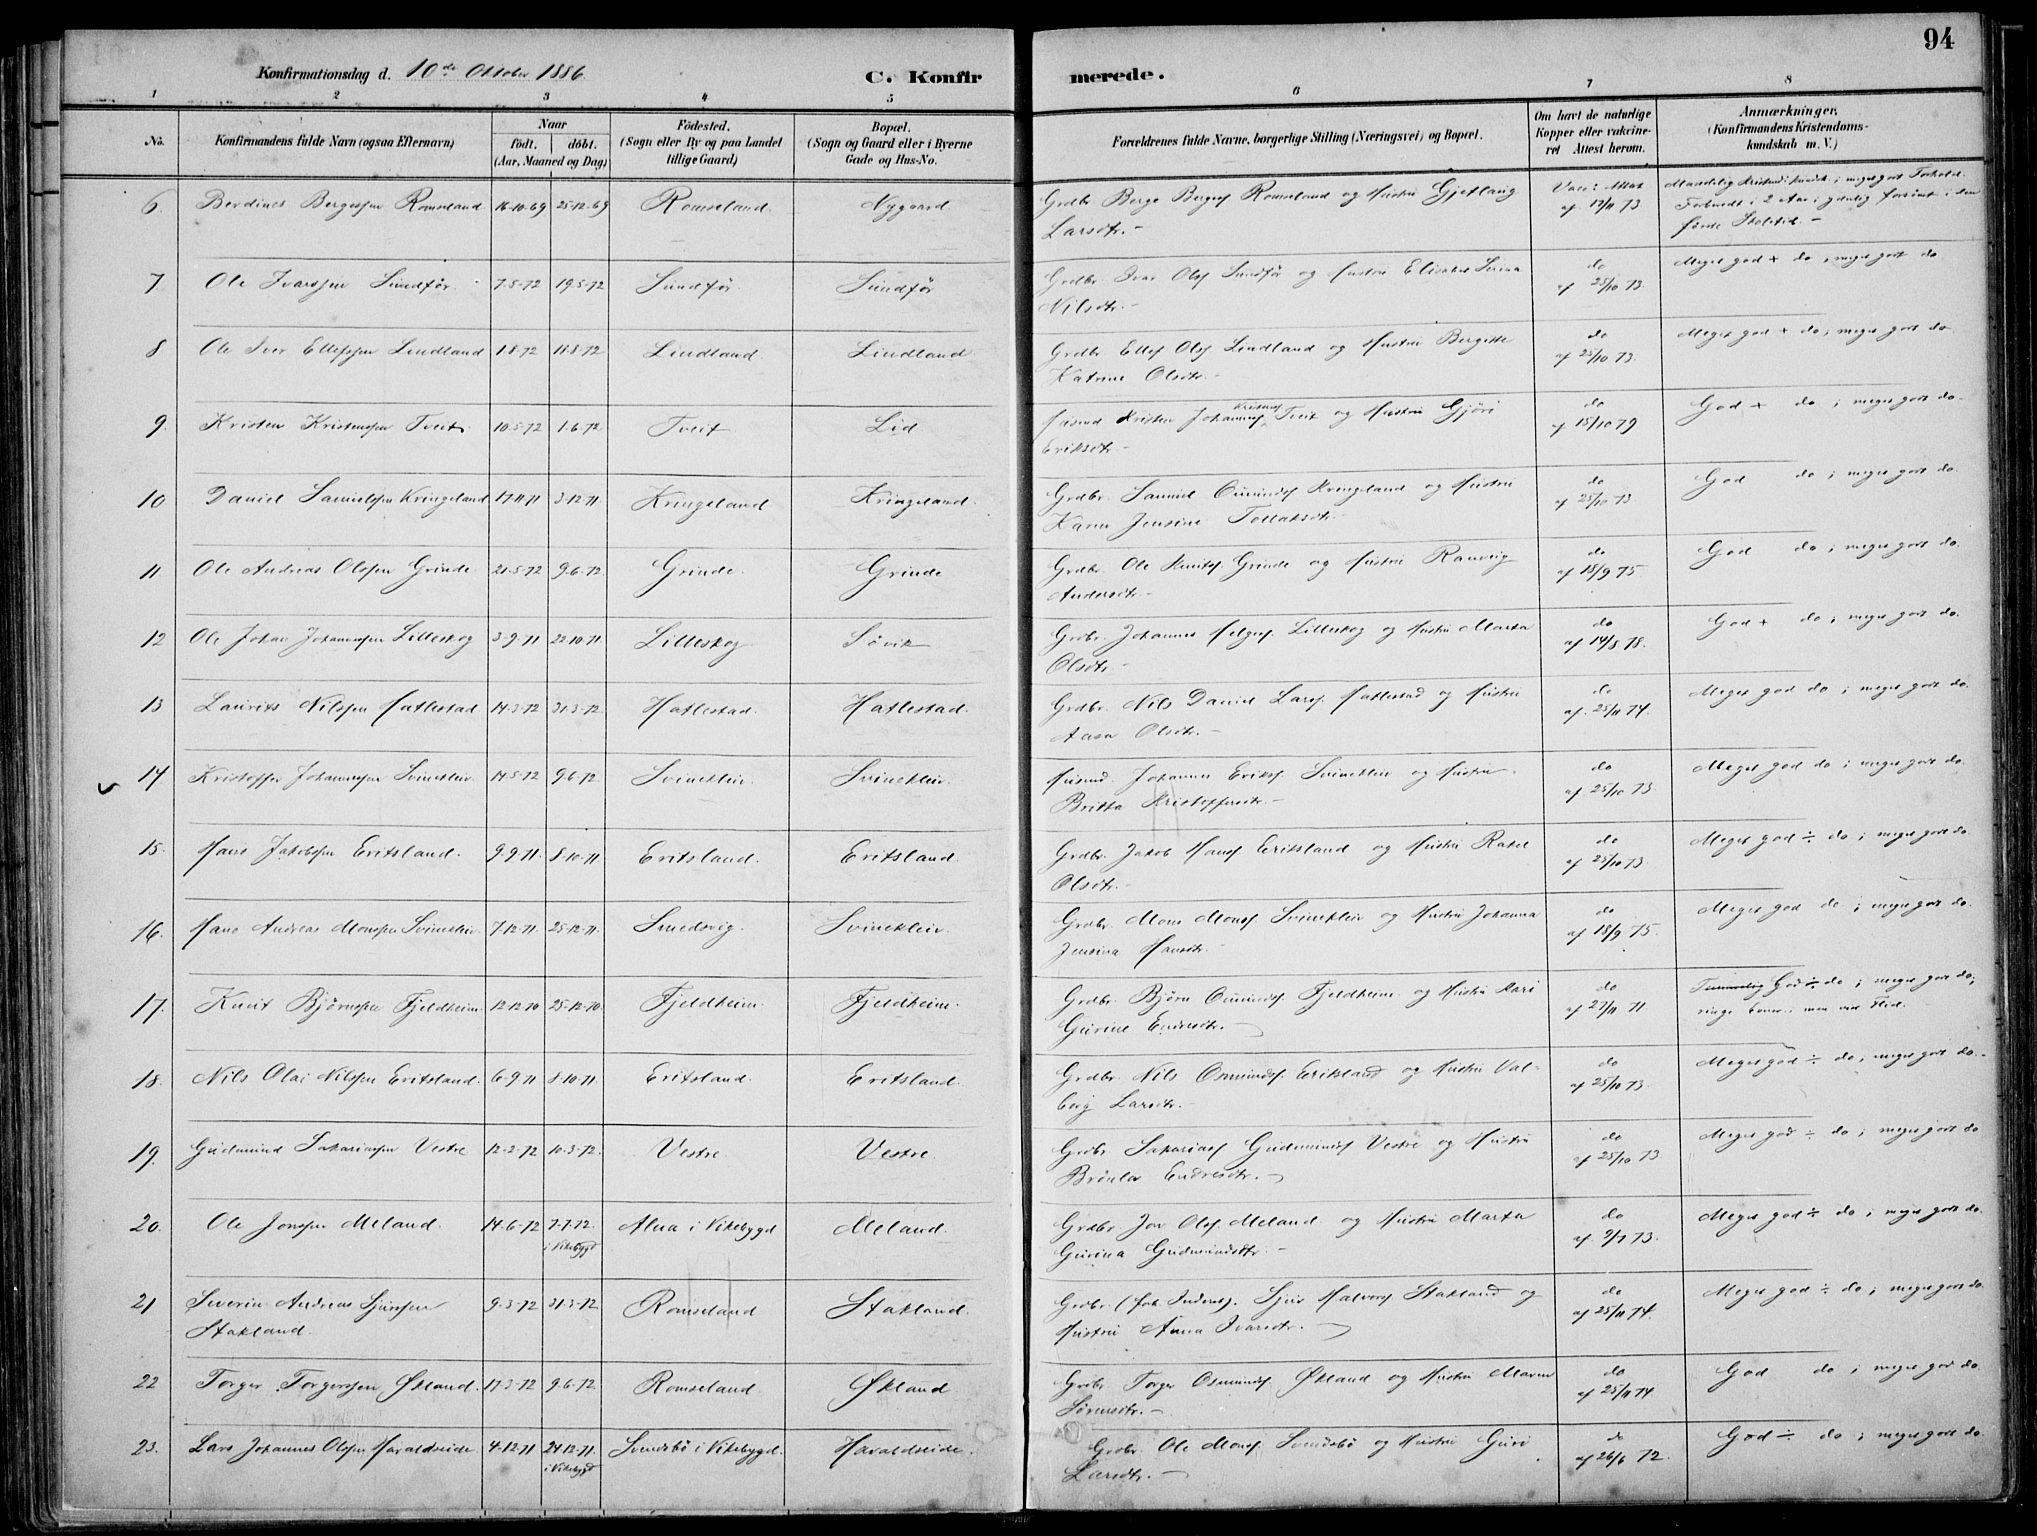 94
Konfirmationsdag d. 10de Oktober 1886.
C. Konfirmerede.
1 2 3 4 5 6 7 8
No. Konfirmandens fulde Navn (ogsaa Efternavn) Naar født. døbt. (Aar, Maaned og Dag) Fødested. (Sogn eller By og paa Landet tillige Gaard) Bopæl. (Sogn og Gaard eller i Byerne Gade og Hus-No. Forældrenes fulde Navne, borgerlige Stilling (Næringsvei) og Bopæl. Om havt de naturlige Kopper eller vakcineret Attest herom. Anmærkninger. (Konfirmandens Kristendomskundskab m. V.)
6 Berdines Bergesen Romseland 16-10-69 25-12-69 Romseland. Nygaard Grdbr. Berge Bergess Romseland og Hustru Gjetlaug
Larsdtr. - Vacc: Attest af 12/11 73
Maadelig Kristend: kundsk: ; meget godt Forhold.
7 Ole Ivarssen Sundfør. 7-5-72 19-5-72 Sundfør. Sundfør Grdbr. Ivar Olss Sundfør og Hustru Elisabet Serina
Nilsdtr. - do af 25/10 73. Meget god + do ; meget godt do
8 Ole Iver Ellefssen Lindland 1-8-72 18-8-72 Lindland. Lindland Grdbr. Ellef Olss Lindland og Hustru Bergitte
Katrine Olsdtr. - do af 25/10 73. Meget god + do ; meget godt do.
9. Kristen Kristenssen Tveit. 10-5-72 1-6-72 Tveit Lid Husmd Kristen Johanness Kristens Tveit og Hustru Gjøri
Eriksdtr. - do af 15/10 79 God + do ; meget godt do.
10 Daniel Samuelssen Kringeland 17-11-71 3-12-71. Kringeland Kringeland. Grdbr. Samuel Osmundss Kringeland og Hustru
Karen Jensine Tollaksdtr. - do af 25/10 73. God do ; meget godt do.
11. Ole Andreas Olssen Grinde. 21-5-72 9-6-72. Grinde. Grinde Grdbr. Ole Knuts Grinde og Hustru Ranveig
Andersdtr. - do af 18/9 75. God do ; meget godt do.
12 Ole Johan Johannessen Lilleskog 3-9-71 22-10-71. Lilleskog Søvik Grdbr. Johannes Helges. Lilleskog og Hustru Marta
Olsdtr. - do af 14/8 78. God + do ; meget godt do.
13 Laurits Nilssen Hatlestad 14-3-72 31-3-72. Hatlestad. Hatlestad. Grdbr. Nils Daniel Larss. Hatlestad og Hustru
Aasa Olsdtr. - do af. 25/11 74. Meget god do ; meget godt do.
14 Kristoffer Johannessen Svinekleiv. 14-5-72 9-6-72. Svinekleiv. Svinekleiv. Husmd. Johannes Eriks. Svinekleiv og Hustru
Britta Kristoffersdtr. - do af 25/10 73. Meget god do ; meget godt do.
15. Hans Jakobssen Eritsland. 9-9-71. 8-10-71 Eritsland. Eritsland. Grdbr. Jakob Hanss Eritsland og Hustru Rakel
Olsdtr. - do af 25/10 73. Meget god ÷ do ; meget godt do.
16. Hans Andreas Monssen Svinekleiv. 7-12-71 25-12-71. Smedsvig. Svinekleiv. Grdbr. Mons Monss. Svinekleiv og Hustru Johanna
Jensina Hansdtr. - do af 18/9 75. Meget god do ; meget godt do.
17. Knut Bjørnssen Fjeldheim. 12-12-70 25-12-70. Fjeldheim. Fjeldheim. Grdbr. Bjørn Osmundss. Fjeldheim og Hustru Kari
Gurine Endresdtr. - do af 27/11 71. Temmelig God ÷ do ; meget godt do;
ringe Evner, men med Flid.
18. Nils Olai Nilssen Eritsland. 6-9-71 8-10-71. Eritsland. Eritsland. Grdbr. Nils Osmunds. Eritsland og Hustru Valborg Larsdtr. - do af 25/10 73. Meget god ÷ do ; meget godt do.
19. Gudmund Sakariassen Vestre 12-2-72 10-3-72. Vestre. Vestre. Grdbr. Sakariass Gudmundss Vestre og Hustru
Brønla Endresdtr. - do af 25/10 73. Meget god ÷ do ; meget godt do
20. Ole Jonssen Meland. 14-6-72 7-7-72. i Vikebygd Alna i Vikebygd Meland. Grdbr. Jon Olss. Meland og Hustru Marta
Gurina Gudmundsdtr. - do af. 2/7 73. Meget god ÷ do ; meget godt do.
21 Severin Andreas Sjurssen
Stakland. 9-3-72 31-3-72. Romseland Stakland. Grdbr. Sjur Halvorss Stakland og
Hustru Anna Ivarsdtr. - do af 25/11 74. Meget god ÷ do ; meget godt do.
22 Torger Torgerssen Økland. 17-3-72 9-6-72. Romseland. Økland Grdbr. Torger Osmunds. Økland og Hustru Maren
Sørensdtr. - do af 25/11 74. God do ; meget godt do.
23. Lars Johannes Olssen Haraldseide 4-12-71 24-12-71. i Vikebygd Svendsbø i Vikebygd. Haraldseide. Grdbr. Ole Monss. Svendsbø og Hustru Guri
Larsdtr. - do af 26/6 72. God ÷ do ; meget godt do.